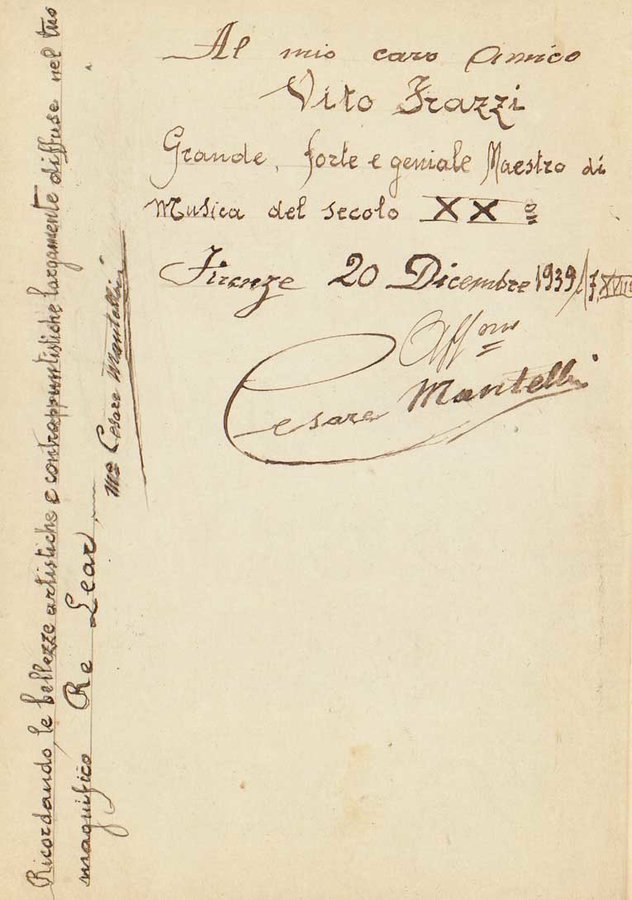 Al mio caro Amico
Vito Frazzi
Grande, forte e geniale Maestro di
Musica del secolo XXº
Firenze 20 Dicembre 1939/F. XVIII
Affmo
Cesare Mantelli
Ricordando le bellezze artistiche e contrappuntistiche largamente diffuse nel tuo
magnifico Re Lear
Mº Cesare Mantelli